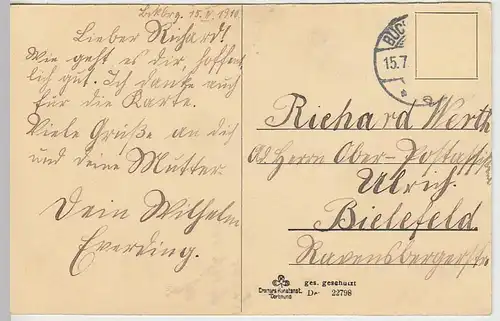 Bckbrg. 15. V. 1910.
Lieber Richard!
Wie geht es dir, hoffent
lich gut. Ich danke auch
für die Karte.
Viele Grüße an dich
und deine Mutter.
Dein Wilhelm
Everding.
BÜC
15.7
Richard Werth
Ad. Herrn Ober-Postassist
Ulrich.
Bielefeld.
Ravensbergerstr
Cramers Kunstanst.
Dortmund
ges. geschützt
Dr 22798